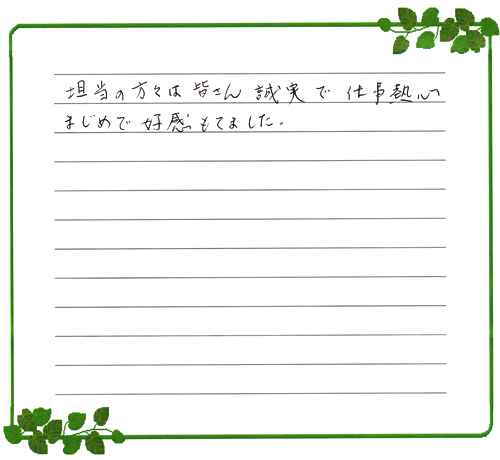 担当の方々は皆さん誠実で仕事熱心
まじめで好感もてました。